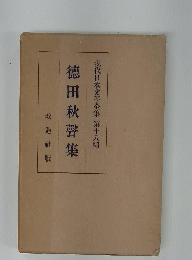 現代日本文學全集 第十八編
德田秋聲集
改造社版